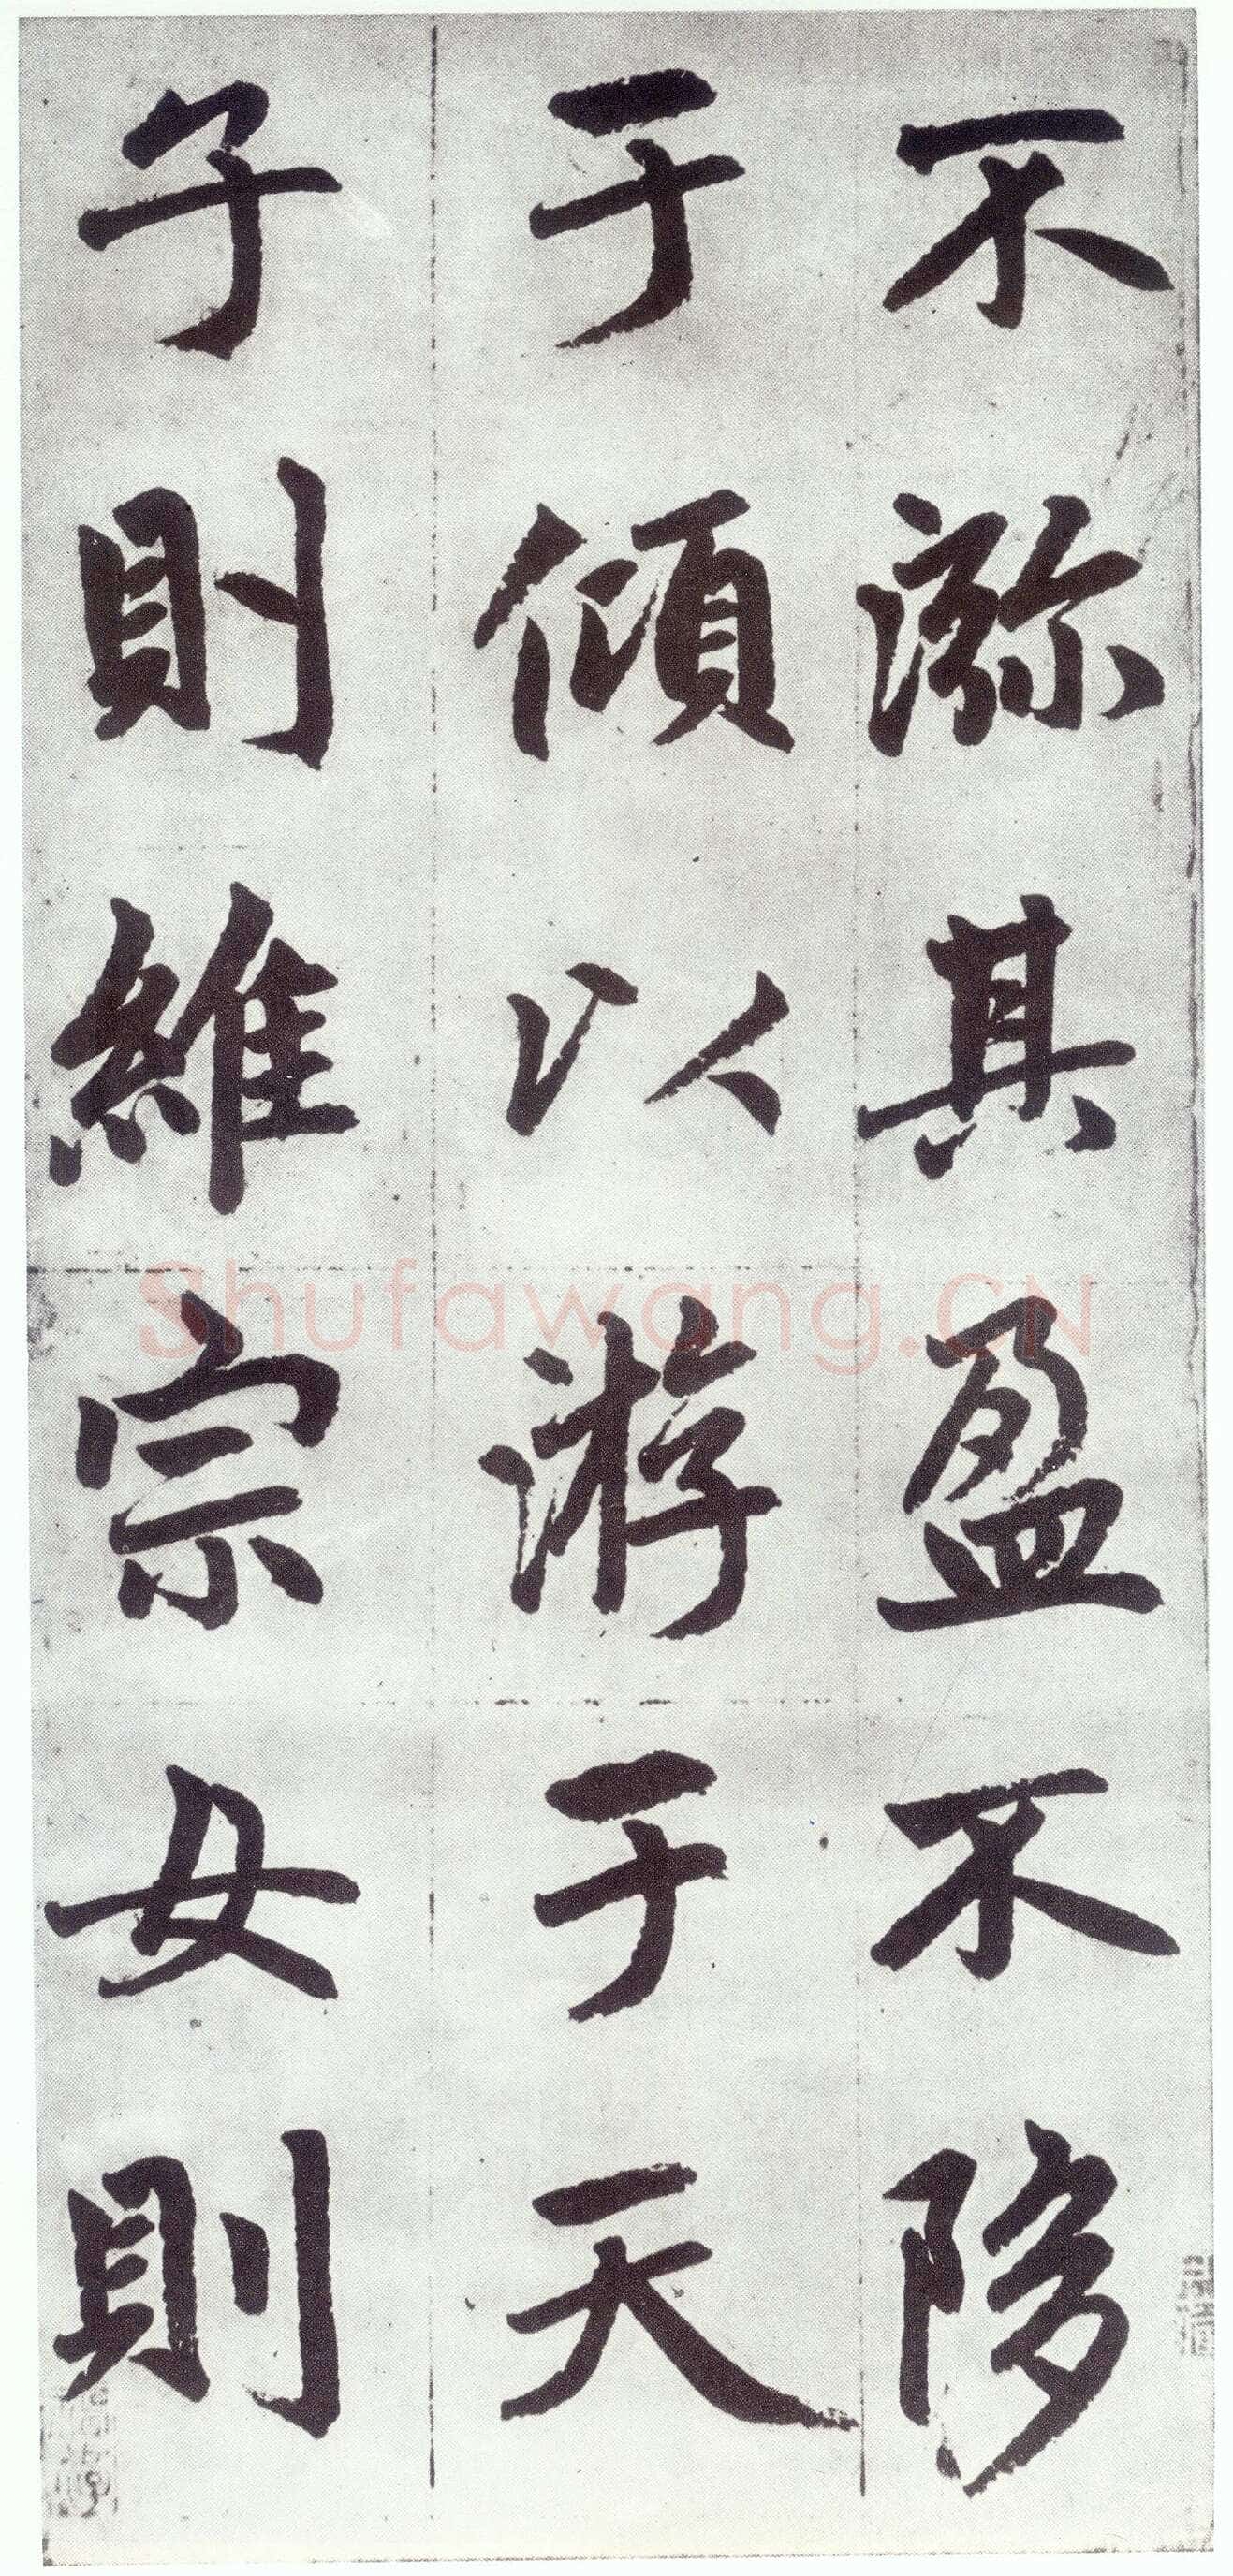 不㳽其盈不陊
于傾以游于天
子則維宗女則
Shufawang.CN